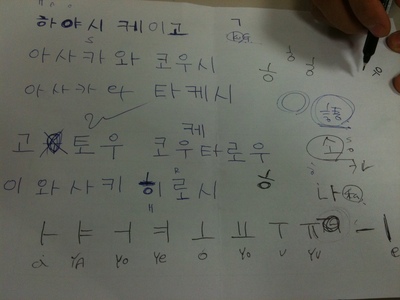 하야시 케이고 ㄱ
S
아사카와 코우시
아사카와 타케시
고토우 코우타로우
케
이와사키 히로시
R
H
소
나
ㅏ ㅑ ㅓ ㅕ ㅗ ㅛ ㅜ ㅠ ㅡ ㅣ
a YA Yo Ye o Yo U YU e